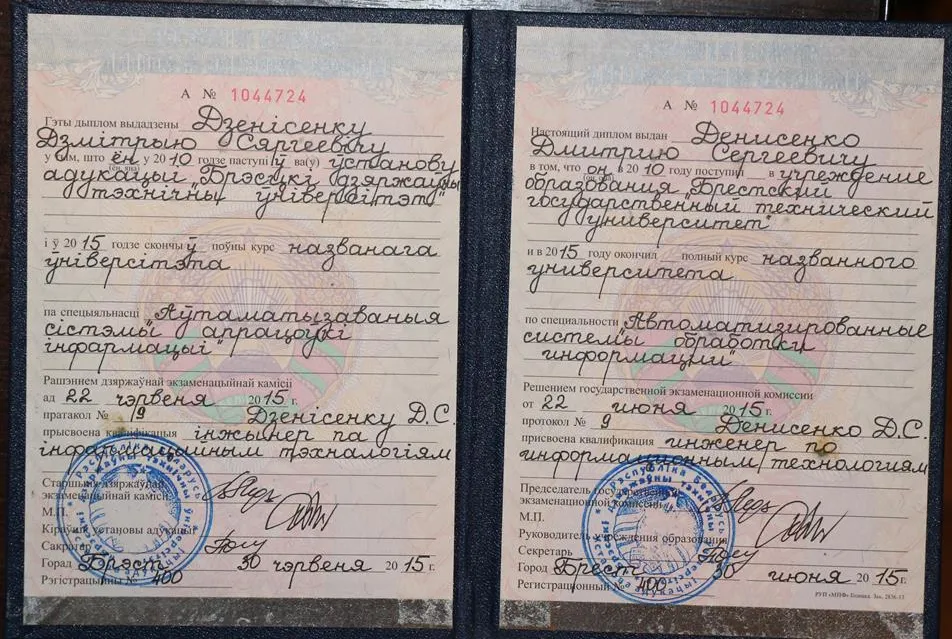 А № 1044724
Гэты дыплом выдадзены Дзенісенку
Дзмітрыю Сяргеевічу
у тым, што ён у 2010 годзе паступіў ва(ў) ўстанову
(ён, яна)
адукацыі "Брэсцкі дзяржаўны
тэхнічны ўніверсітэт"
і ў 2015 годзе скончыў поўны курс названага
ўніверсітэта
па спецыяльнасці "Аўтаматызаваныя
сістэмы апрацоўкі
інфармацыі"
Рашэннем дзяржаўнай экзаменацыйнай камісіі
ад 22 чэрвеня 2015 г.
пратакол № 9 Дзенісенку Д.С.
прысвоена кваліфікацыя інжынер па
інфармацыйным тэхналогіям
Старшыня дзяржаўнай
экзаменацыйнай камісіі
М.П.
Кіраўнік установы адукацыі
Сакратар
Горад Брэст 30 чэрвеня 2015 г.
Рэгістрацыйны № 400
А № 1044724
Настоящий диплом выдан Денисенко
Дмитрию Сергеевичу
в том, что он в 2010 году поступил в учреждение
(он, она)
образования "Брестский
государственный технический
университет"
и в 2015 году окончил полный курс названного
университета
по специальности "Автоматизированные
системы обработки
информации"
Решением государственной экзаменационной комиссии
от 22 июня 2015 г.
протокол № 9 Денисенко Д.С.
присвоена квалификация инженер по
информационным технологиям
Председатель государственной
экзаменационной комиссии
М.П.
Руководитель учреждения образования
Секретарь
Город Брест 30 июня 2015 г.
Регистрационный № 400
РУП «МПФ» Гознака. Зак. 2836-13